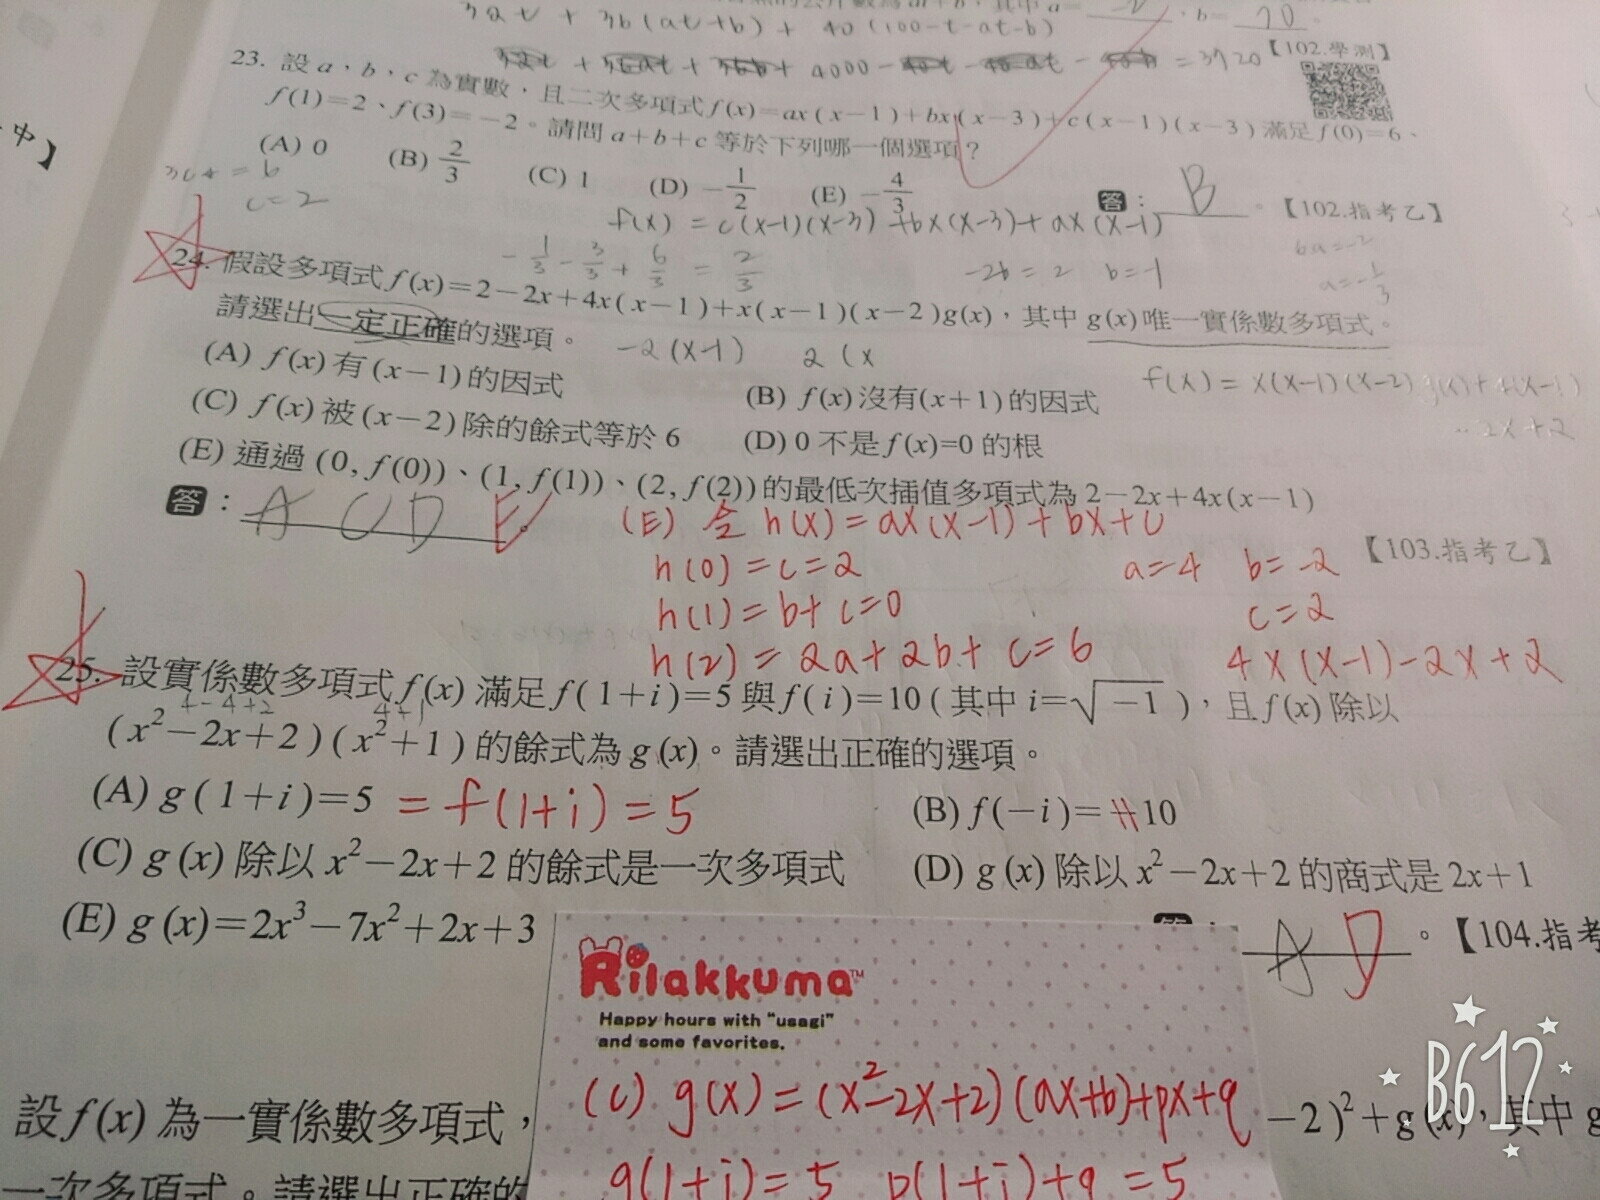 32t + 36(at+b) + 40(100-t-at-b)
b= 70
+ 4000 - = 3720【102.學測】
23. 設a、b、c為實數，且二次多項式f(x)=ax(x-1)+bx(x-3)+c(x-1)(x-3)滿足f(0)=6、
f(1)=2、f(3)=-2。請問a+b+c等於下列哪一個選項？
(A) 0 (B) 2/3 (C) 1 (D) -1/2 (E) -4/3
答：B。【102.指考乙】
c=2
f(x) = c(x-1)(x-3)+bx(x-3)+ax(x-1)
-1/3 - 3/3 + 6/3 = 2/3
-2b=2 b=-1
6a=-2
a=-1/3
24. 假設多項式f(x)=2-2x+4x(x-1)+x(x-1)(x-2)g(x)，其中g(x)唯一實係數多項式。
請選出一定正確的選項。
-2(x-1) 2(x
(A) f(x)有(x-1)的因式
(B) f(x)沒有(x+1)的因式
f(x) = x(x-1)(x-2)g(x)+4x(x-1)
-2x+2
(C) f(x)被(x-2)除的餘式等於6
(D) 0不是f(x)=0的根
(E) 通過(0, f(0))、(1, f(1))、(2, f(2))的最低次插值多項式為2-2x+4x(x-1)
答：A C D E。
【103.指考乙】
(E) 令 h(x)=ax(x-1)+bx+c
h(0)=c=2
a=4 b=-2
h(1)=b+c=0
c=2
h(2)=2a+2b+c=6
4x(x-1)-2x+2
25. 設實係數多項式f(x)滿足f(1+i)=5與f(i)=10(其中i=√-1)，且f(x)除以
4-4+2 4+1
(x²-2x+2)(x²+1)的餘式為g(x)。請選出正確的選項。
(A) g(1+i)=5 = f(1+i)=5
(B) f(-i)= 10
(C) g(x)除以x²-2x+2的餘式是一次多項式
(D) g(x)除以x²-2x+2的商式是2x+1
(E) g(x)=2x³-7x²+2x+3
A D。【104.指考
Rilakkuma™
Happy hours with "usagi"
and some favorites.
(C) g(x)=(x²-2x+2)(ax+b)+px+q
g(1+i)=5 p(1+i)+q=5
設f(x)為一實係數多項式，
-2)²+g(x)，其中g
一次多項式。請選出正確的
B612